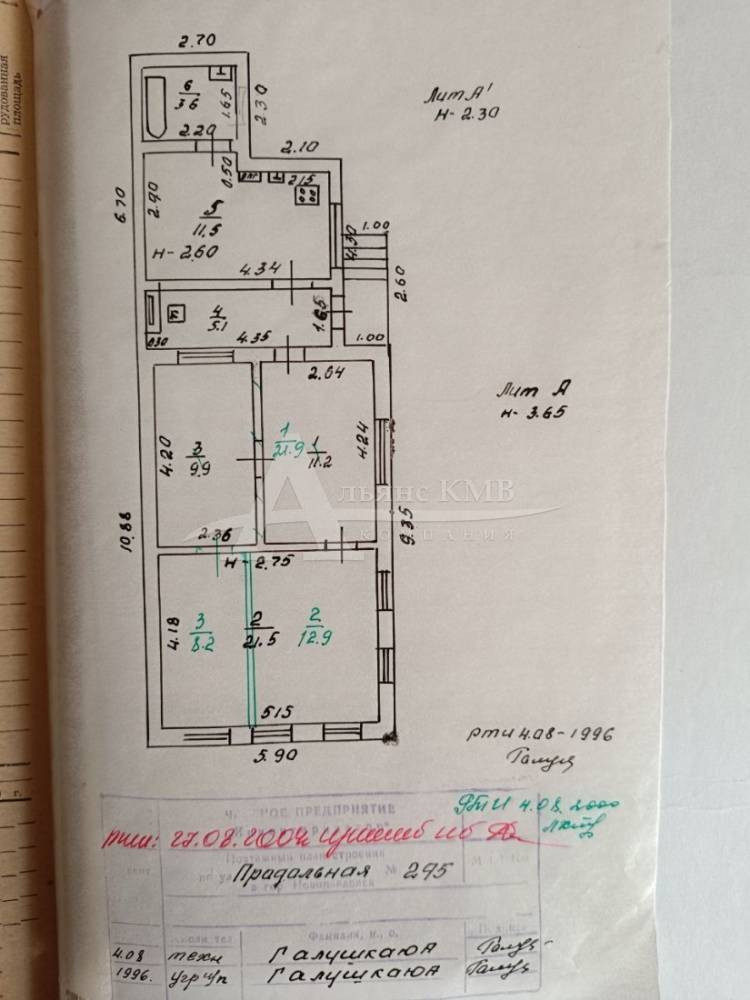 рудованная
площадь
2.70
6
3.6
1.65
2.30
Лит А'
н- 2.30
2.20
2.10
0.50
2.15
6.70
2.90
5
11.5
н- 2.60
4.34
4.30
1.00
2.60
4
5.1
1.65
0.30
4.35
1.00
2.64
Лит А
н- 3.65
4.20
3
9.9
1
21.9
1
11.2
4.24
Альянс КМВ
КОМПАНИЯ
10.88
9.35
2.36
н- 2.75
4.18
3
8.2
2
21.5
2
12.9
5.15
5.90
рти 4.08-1996
РТИ 4.08.2000
ПРЕДПРИЯТИЕ
27.08.2004г
Поэтажный план строения
Продольная № 295
Фамилия, и., о.
4.08 техн Галушка ЮА
1996. Галушка ЮА